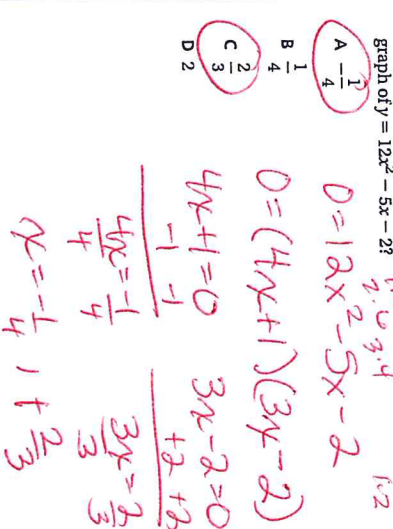 graph of y = 12x² − 5x − 2?
A −1/4
B 1/4
C 2/3
D 2
2·6 3·4
1·2
0 = 12x² − 5x − 2
0 = (4x+1)(3x−2)
4x+1=0 3x−2=0
−1 −1 +2 +2
4x = −1 3x = 2
4 4 3 3
x = −1/4 , + 2/3